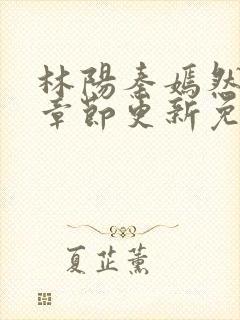 林陽秦嫣然
章節更新免
夏芷薰